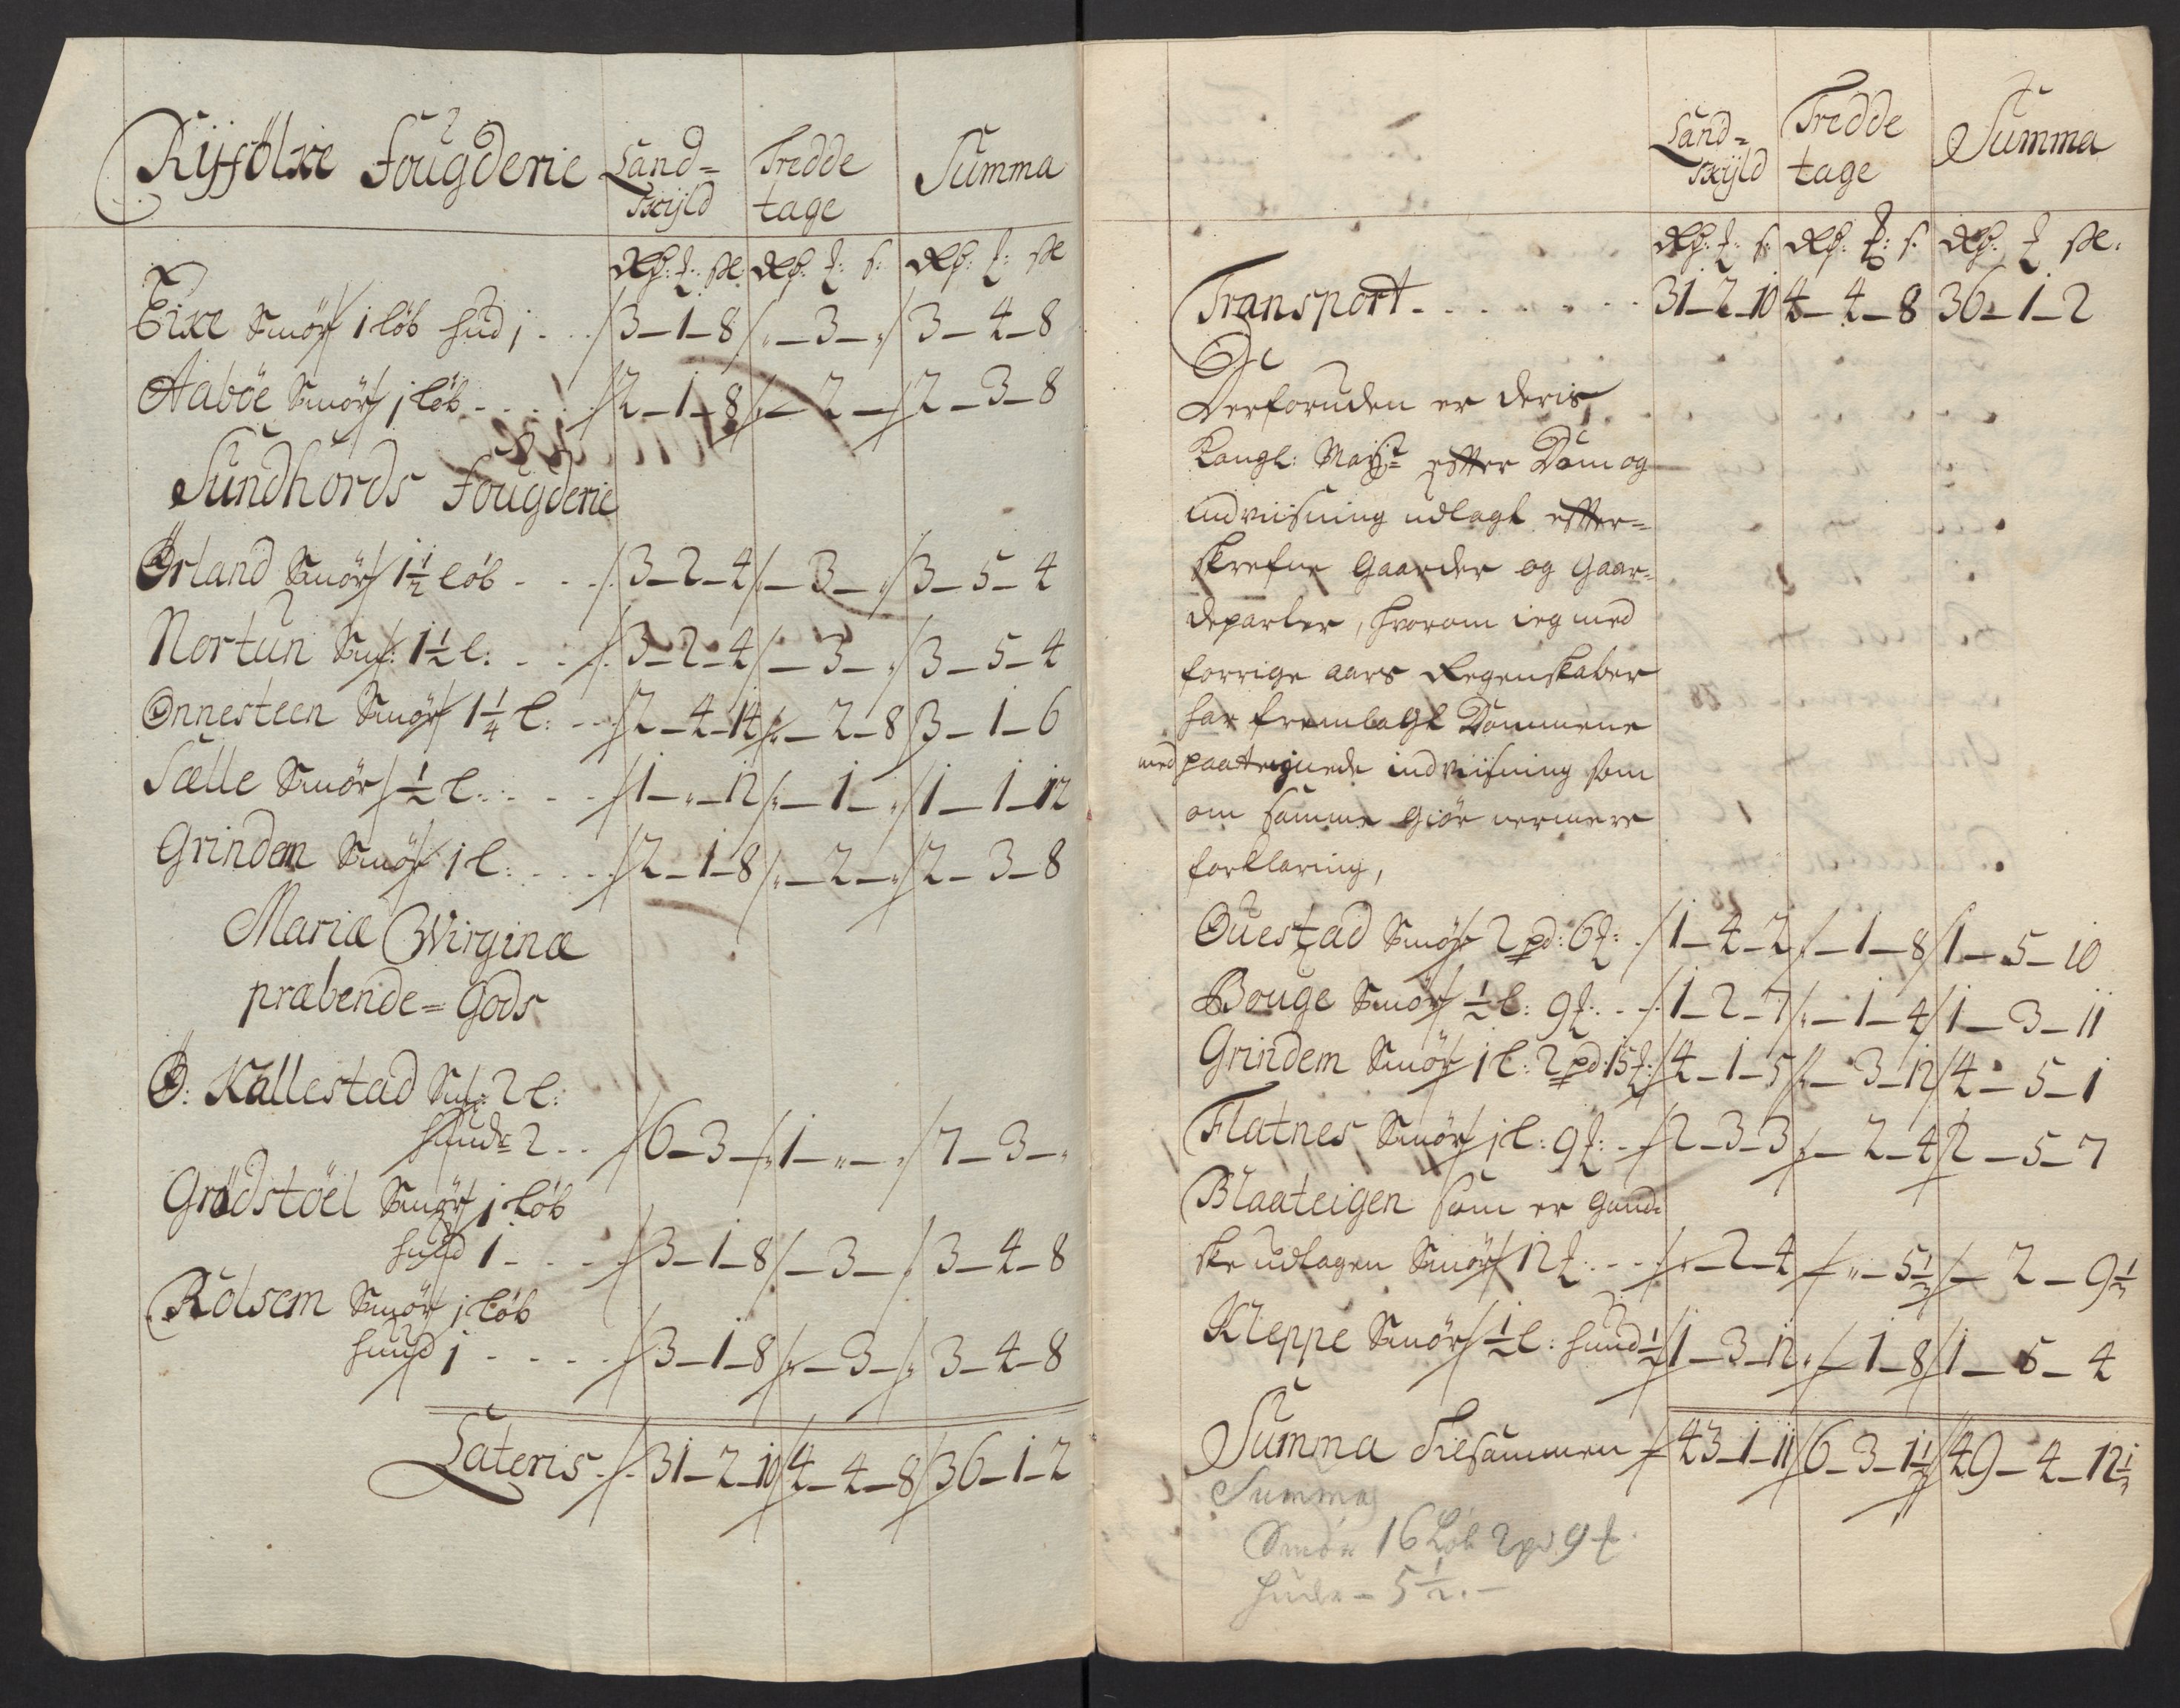 Ryfölke Fougderie Land= Tredde Summa
skyld tage
Rdr: ℔: sk: Rdr: ℔: s: Rdr: ℔: sk
Eike Smör 1 löb hud 1 - - 3 - 1 - 8 „ - 3 - „ 3 - 4 - 8
Aaböe Smör 1 löb - - - - 2 - 1 - 8 „ - 2 - „ 2 - 3 - 8
Sundhords Fougderie
Ørland Smör 1½ löb - - - 3 - 2 - 4 „ - 3 - „ 3 - 5 - 4
Nortun Sm: 1½ l: - - - 3 - 2 - 4 „ - 3 - „ 3 - 5 - 4
Onnesteen Smör 1¼ l: - - 2 - 4 - 14 „ - 2 - 8 3 - 1 - 6
Sælle Smör ½ l: - - - 1 - „ - 12 „ - 1 - „ 1 - 1 - 12
Grindem Smör 1 l: - - - - 2 - 1 - 8 „ - 2 - „ 2 - 3 - 8
Mariæ Wirginæ
præbende = Gods
Ø: Kallestad Sm: 2 l:
huude 2 - - 6 - 3 - „ 1 - „ - „ 7 - 3 - „
Grödstöel Smör 1 löb
huud 1 - - - 3 - 1 - 8 „ - 3 - „ 3 - 4 - 8
Rolsem Smör 1 löb
huud 1 - - - - 3 - 1 - 8 „ - 3 - „ 3 - 4 - 8
Lateris - - 31 - 2 - 10 4 - 4 - 8 36 - 1 - 2
Land= Tredde Summa
skyld tage
Rdr: ℔: s: Rdr: ℔: s: Rdr: ℔ sk:
Transport - - - - - - - 31 - 2 - 10 4 - 4 - 8 36 - 1 - 2
Derforuden er deris
Kongl: Mayst: efter Dom og
indviisning udlagt efter=
skrefne Gaarder og Gaar=
departer, hvorom ieg med
forrige aars Regenskaber
har fremlagt Dommene
med paategnede indviisning som
om samme giör nermere
forklaring,
Øuestad Smör 2 pd: 6 ℔: - 1 - 4 - 2 „ - 1 - 8 1 - 5 - 10
Bouge Smör ½ l: 9 ℔: - - 1 - 2 - 7 „ - 1 - 4 1 - 3 - 11
Grindem Smör 1 l: 2 pd: 15 ℔: 4 - 1 - 5 „ - 3 - 12 4 - 5 - 1
Flatnes Smör 1 l: 9 ℔: - 2 - 3 - 3 „ - 2 - 4 2 - 5 - 7
Blaateigen som er gand=
ske udlagen Smör 12 ℔: - - - „ - 2 - 4 „ - „ - 5⅓ „ - 2 - 9⅓
Kleppe Smör ½ l: huud ½ 1 - 3 - 12 „ - 1 - 8 1 - 5 - 4
Summa Tilsammen 43 - 1 - 11 6 - 3 - 1⅓ 49 - 4 - 12⅓
Summa
Smör 16 Löb 2 pd 9 ℔
Hude - 5½. -